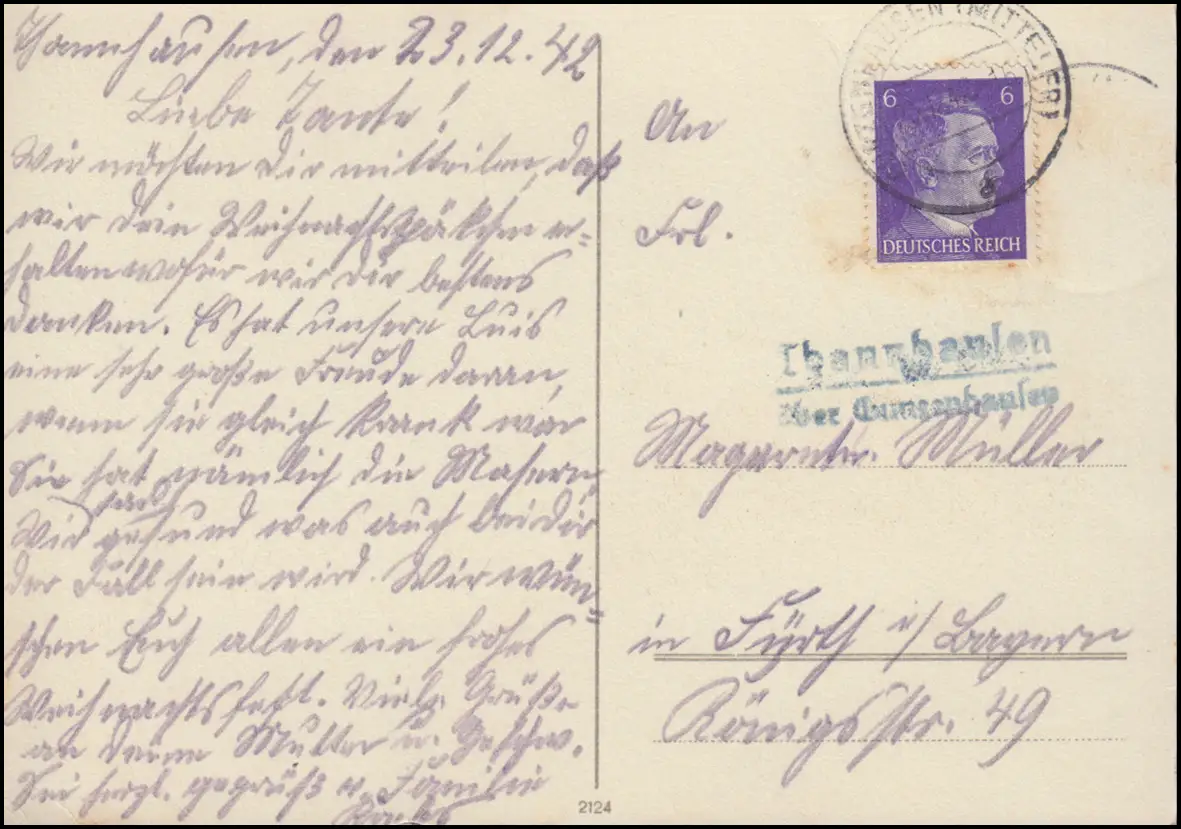 Thannhausen, den 23.12.42
Liebe Tante!
Wir möchten Dir mitteilen, daß
wir dein Weihnachtspäkchen er-
halten wofür wir dir bestens
danken. Es hat unsere Luis
eine sehr große Freude daran,
wenn sie gleich krank war
Sie hat nämlich die Masern.
Wir sind gesund was auch bei dir
der Fall sein wird. Wir wün-
schen Euch allen ein frohes
Weihnachtsfest. Viele Grüße
an deine Mutter u. Geschw.
Sei herzl. gegrüßt v. Familie
An
Frl.
6 6
DEUTSCHES REICH
GUNZENHAUSEN (MITTELFR)
a
Thannhausen
über Gunzenhausen
Müller
in Fürth i/ Bayern
Königsstr. 49
2124